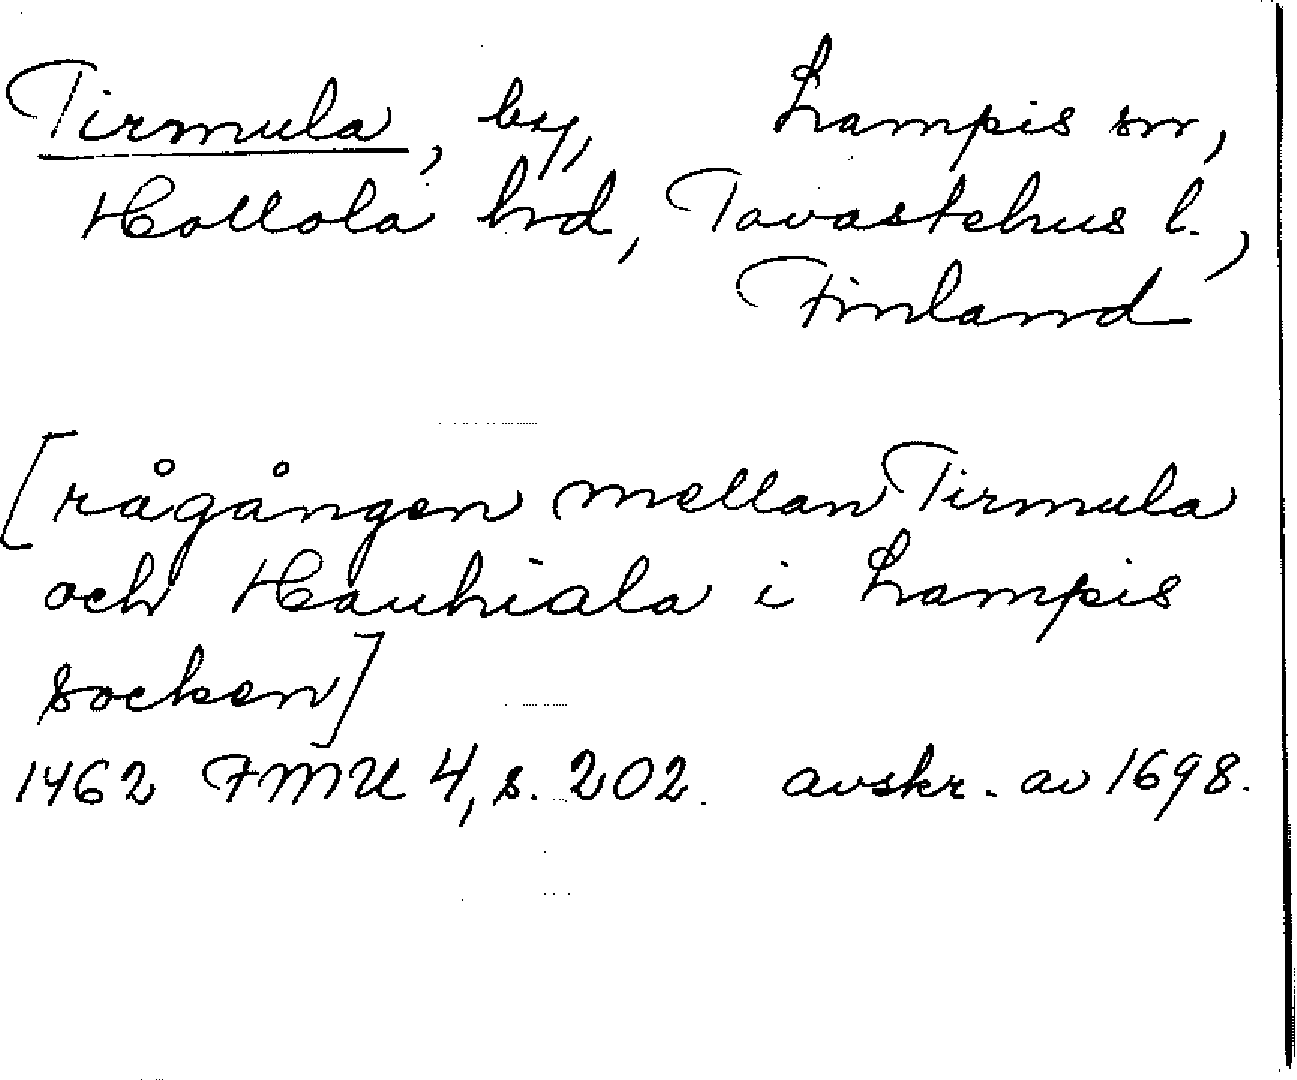 Tirmula, by, Lampis sn,
Hollola hrd, Tavastehus l.,
Finland
[rågången mellan Tirmula
och Hauhiala i Lampis
socken]
1462 FMU 4, s. 202. avskr. av 1698.